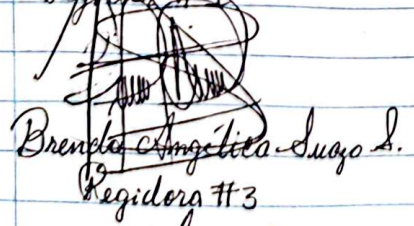 Brenda Angélica Suazo S.
Regidora #3